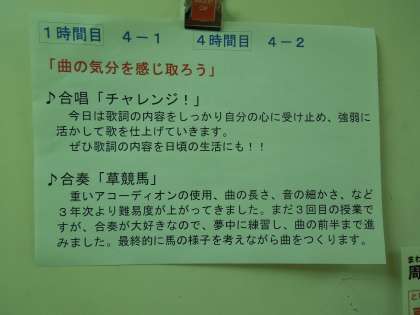 １時間目　４－１　　４時間目　４－２
「曲の気分を感じ取ろう」
♪合唱「チャレンジ！」
今日は歌詞の内容をしっかり自分の心に受け止め、強弱に
活かして歌を仕上げていきます。
ぜひ歌詞の内容を日頃の生活にも！！
♪合奏「草競馬」
重いアコーディオンの使用、曲の長さ、音の細かさ、など
３年次より難易度が上がってきました。まだ３回目の授業で
すが、合奏が大好きなので、夢中に練習し、曲の前半まで進
みました。最終的に馬の様子を考えながら曲をつくります。
まわ
周